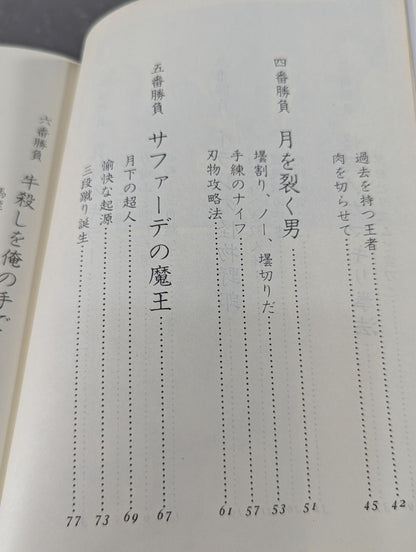 過去を持つ王者……42
肉を切らせて……45
四番勝負 月を裂く男……51
壜割り、ノー、壜切りだ……53
手練のナイフ……57
刃物攻略法……61
五番勝負 サファーデの魔王……67
月下の超人……69
愉快な起源……73
三段蹴り誕生……77
六番勝負 牛殺しを俺の手で